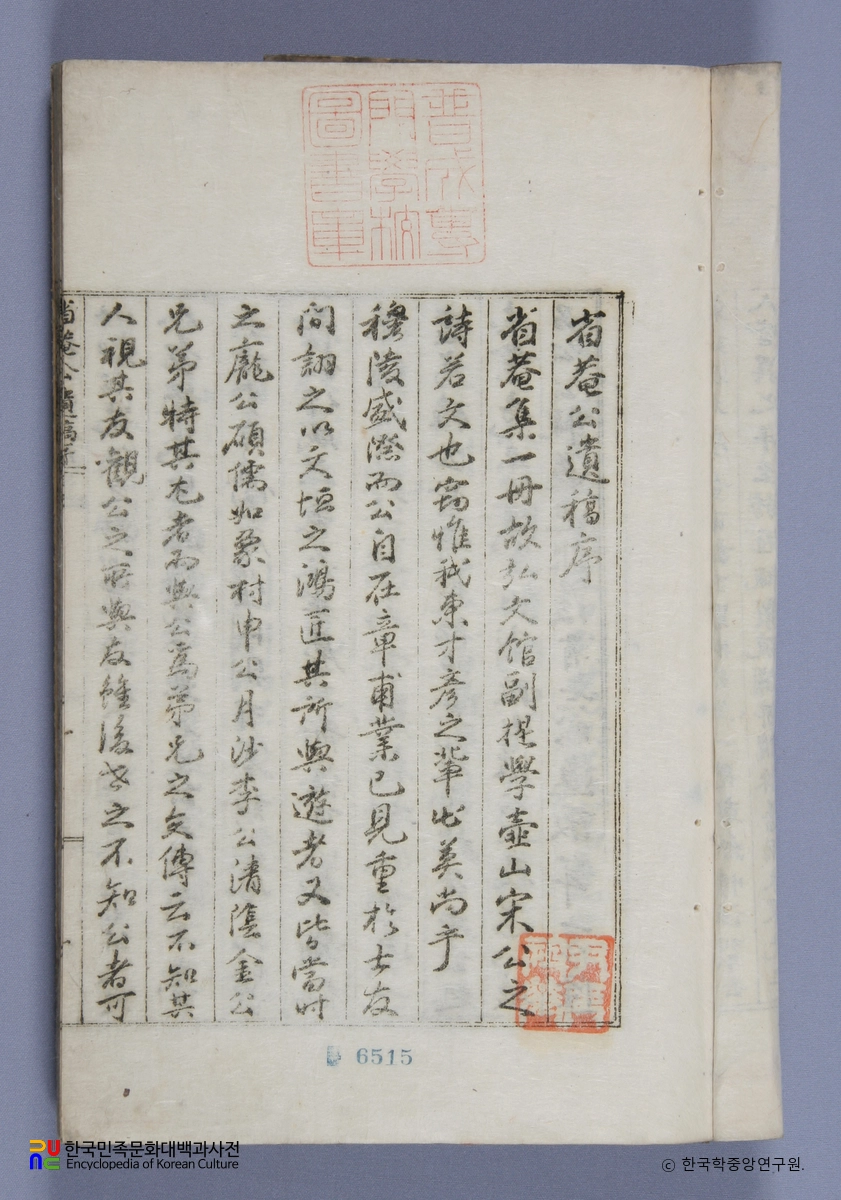 普成專
門學校
圖書軍
省菴公遺稿序
省菴集一冊故弘文館副提學壺山宋公之
詩若文也窃惟我東才彦之輩出莫尚乎
穆陵盛際而公自在章甫業已見重於士友
間翺之以文垣之鴻匠其所與遊者又皆當時
之龐公碩儒如象村申公月沙李公淸陰金公
兄弟特其尤者而與公爲弟兄之交傳云不知其
人視其友觀公之所與友雖後世之不知公者可
省菴公遺稿序
6515
한국민족문화대백과사전
Encyclopedia of Korean Culture
ⓒ 한국학중앙연구원.